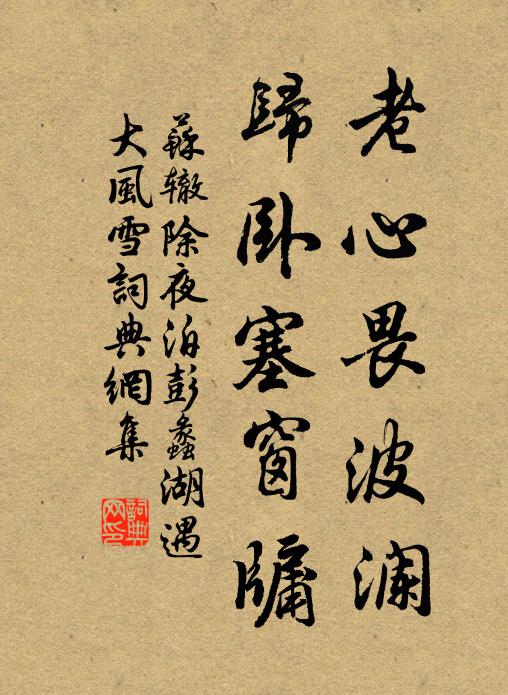 老心畏波澜
歸卧塞窗牖
蘇辙除夜泊彭蠡湖遇
大風雪詞典網集
詞典
网印